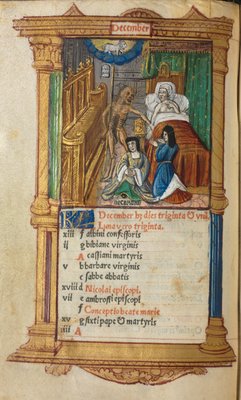 December
DECEMBER
December hȝ dies triginta & vnū
Luna vero triginta.
xiii f albini confessoris
ii g bibiane virginis
A cassiani martyris
v b barbare virginis
c sabbe abbatis
xviii d Nicolai episcopi.
e ambrosii episcopi
f Conceptio beate marie
xv g sixti pape & martyris
iiii A